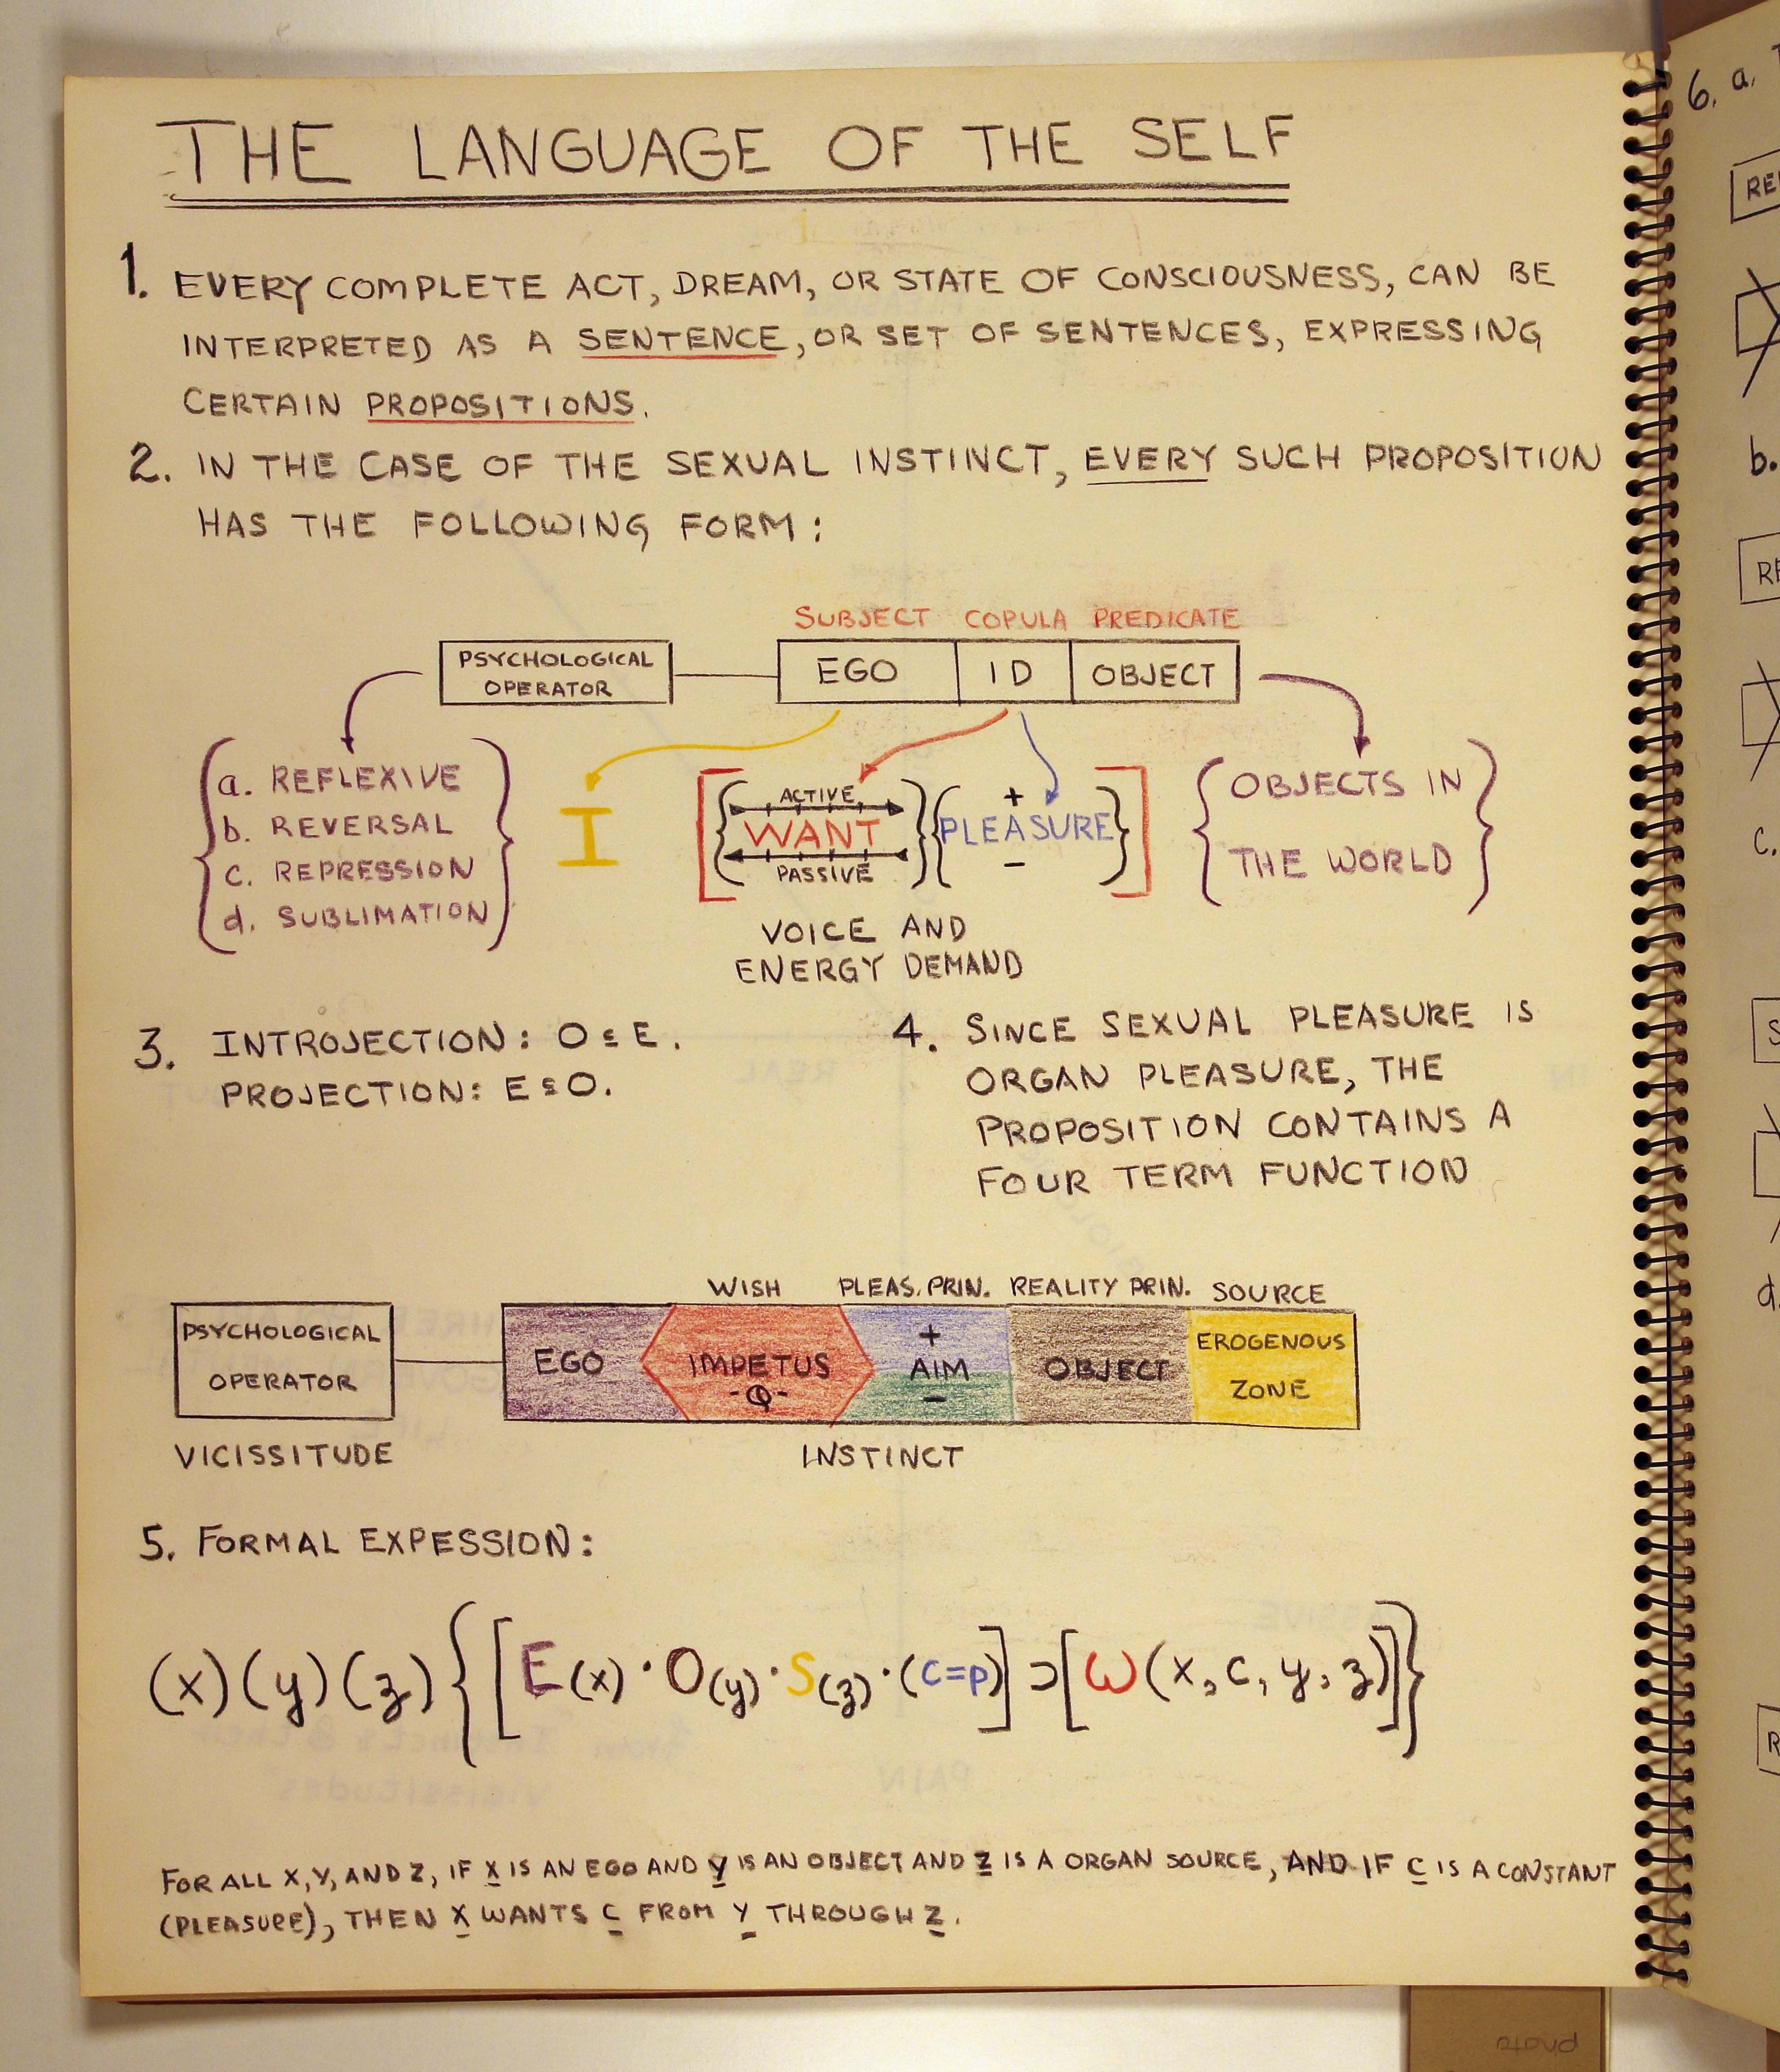 THE LANGUAGE OF THE SELF
1. EVERY COMPLETE ACT, DREAM, OR STATE OF CONSCIOUSNESS, CAN BE
INTERPRETED AS A SENTENCE, OR SET OF SENTENCES, EXPRESSING
CERTAIN PROPOSITIONS.
2. IN THE CASE OF THE SEXUAL INSTINCT, EVERY SUCH PROPOSITION
HAS THE FOLLOWING FORM:
SUBJECT COPULA PREDICATE
PSYCHOLOGICAL
OPERATOR
EGO ID OBJECT
a. REFLEXIVE
b. REVERSAL
c. REPRESSION
d. SUBLIMATION
I
ACTIVE
WANT
PASSIVE
+
PLEASURE
-
OBJECTS IN
THE WORLD
VOICE AND
ENERGY DEMAND
3. INTROJECTION: O ≤ E.
PROJECTION: E ≤ O.
4. SINCE SEXUAL PLEASURE IS
ORGAN PLEASURE, THE
PROPOSITION CONTAINS A
FOUR TERM FUNCTION
WISH PLEAS. PRIN. REALITY PRIN. SOURCE
PSYCHOLOGICAL
OPERATOR
EGO
IMPETUS
-Q-
+
AIM
-
OBJECT
EROGENOUS
ZONE
VICISSITUDE
INSTINCT
5. FORMAL EXPESSION:
(x)(y)(z){[E(x)·O(y)·S(z)·(c=p)]⊃[W(x,c,y,z)]}
FOR ALL X, Y, AND Z, IF X IS AN EGO AND Y IS AN OBJECT AND Z IS A ORGAN SOURCE, AND IF C IS A CONSTANT
(PLEASURE), THEN X WANTS C FROM Y THROUGH Z.
6. a.
b.
c.
d.